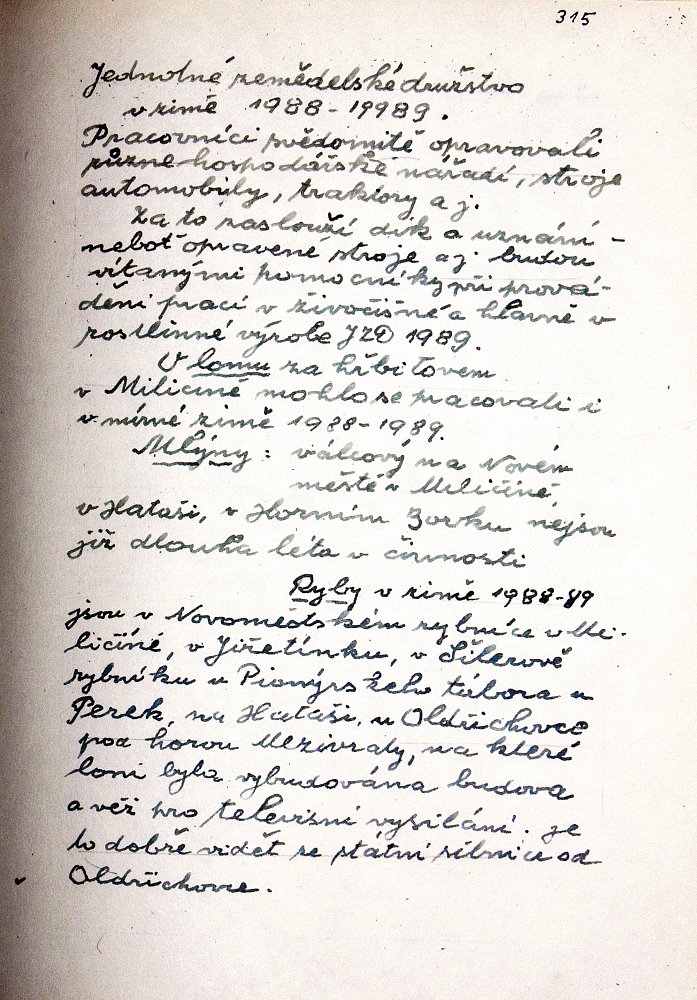 315
Jednotné zemědělské družstvo
v zimě 1988-19989.
Pracovníci svědomitě opravovali
různe hospodářské nářadí, stroje
automobily, traktory a j.
Za to zaslouží dík a uznání -
neboť opravené stroje a j. budou
vítanými pomocníky při prová-
dění prací v živočišné a hlavně v
rostlinné výrobe JZD 1989.
V lomu za hřbitovem
v Miličíně mohlo se pracovati i
v mírné zimě 1988-1989.
Mlýny: válcový na Novém
městě v Miličíně,
v Hataši, v Horním Borku nejsou
již dlouhá léta v činnosti
Ryby v zimě 1988-89
jsou v Novoměstském rybníce v Mi-
ličíně, v Jiřetínku, v Šilerově
rybníku u Pionýrského tábora u
Perek, na Hataši, u Oldřichovce
pod horou Mezivraty, na které
loni byla vybudována budova
a věž pro televisní vysílání. Je
to dobře vidět se státní silnice od
Oldřichovce.